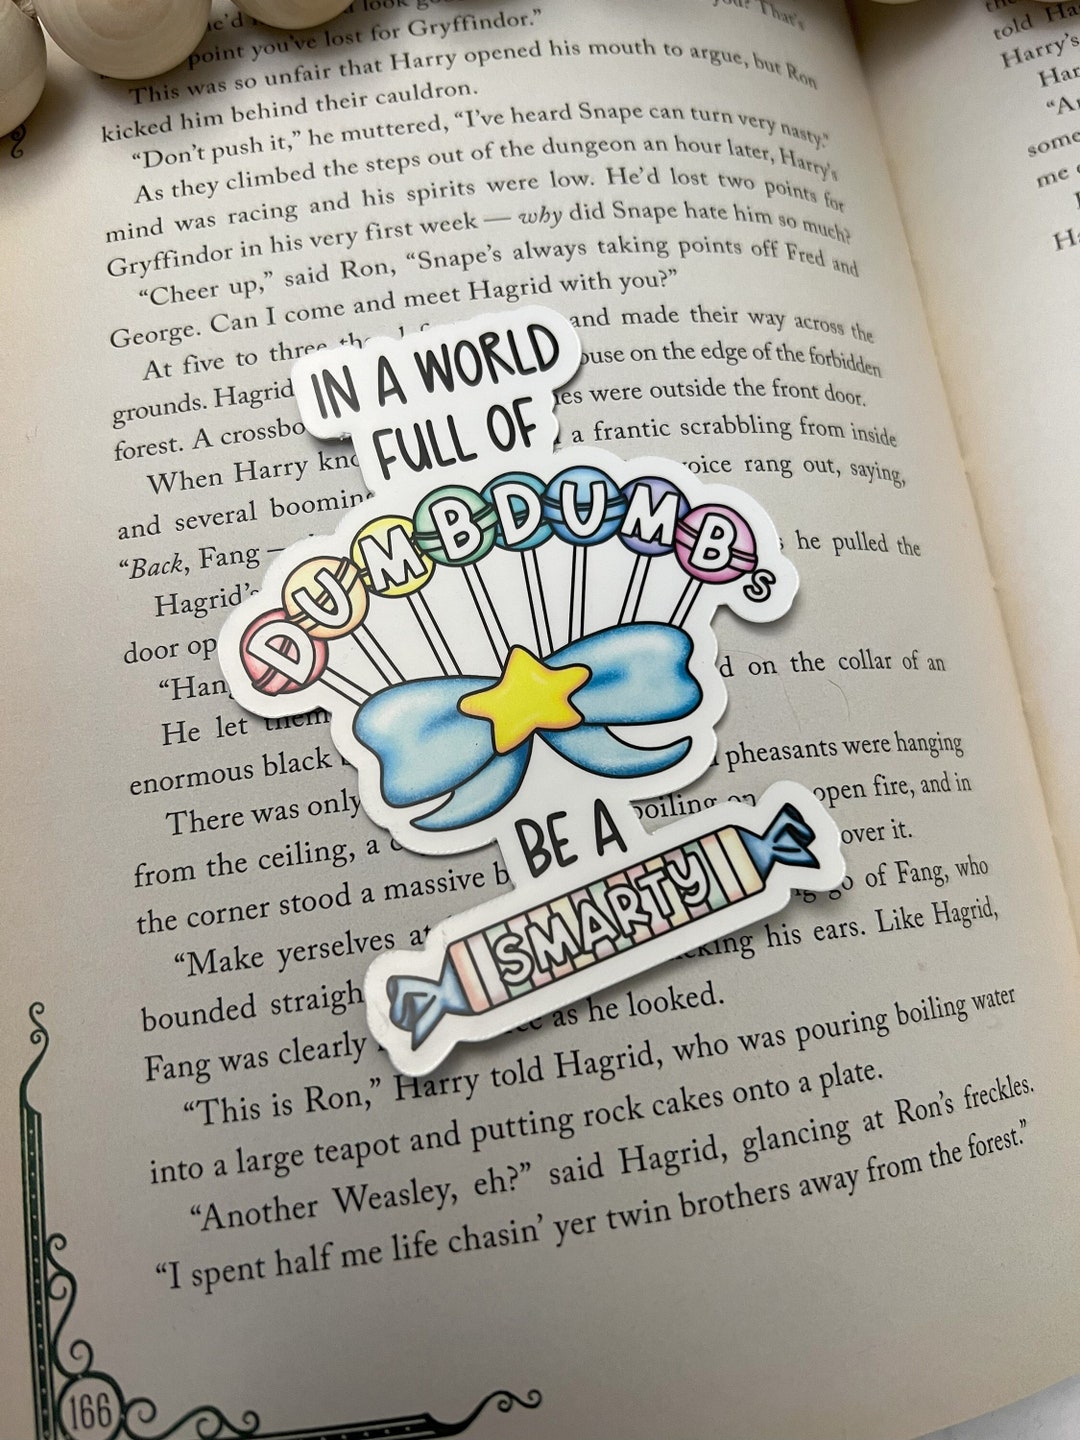 point you've lost for Gryffindor."
This was so unfair that Harry opened his mouth to argue, but Ron
kicked him behind their cauldron.
"Don't push it," he muttered, "I've heard Snape can turn very nasty."
As they climbed the steps out of the dungeon an hour later, Harry's
mind was racing and his spirits were low. He'd lost two points for
Gryffindor in his very first week — why did Snape hate him so much?
"Cheer up," said Ron, "Snape's always taking points off Fred and
George. Can I come and meet Hagrid with you?"
At five to three and made their way across the
grounds. Hagrid on the edge of the forbidden
forest. A were outside the front door.
When Harry a frantic scrabbling from inside
and several rang out, saying,
"Back, Fang —
he pulled the
door
on the collar of an
He let them
enormous black
pheasants were hanging
There was only
boiling on open fire, and in
from the ceiling, a
over it.
the corner stood a massive
go of Fang, who
"Make yerselves
his ears. Like Hagrid,
bounded
Fang was clearly as he looked.
"This is Ron," Harry told Hagrid, who was pouring boiling water
into a large teapot and putting rock cakes onto a plate.
"Another Weasley, eh?" said Hagrid, glancing at Ron's freckles.
"I spent half me life chasin' yer twin brothers away from the forest."
166
IN A WORLD
FULL OF
DUMBDUMBs
BE A
SMARTY
told
Harry's
some
me